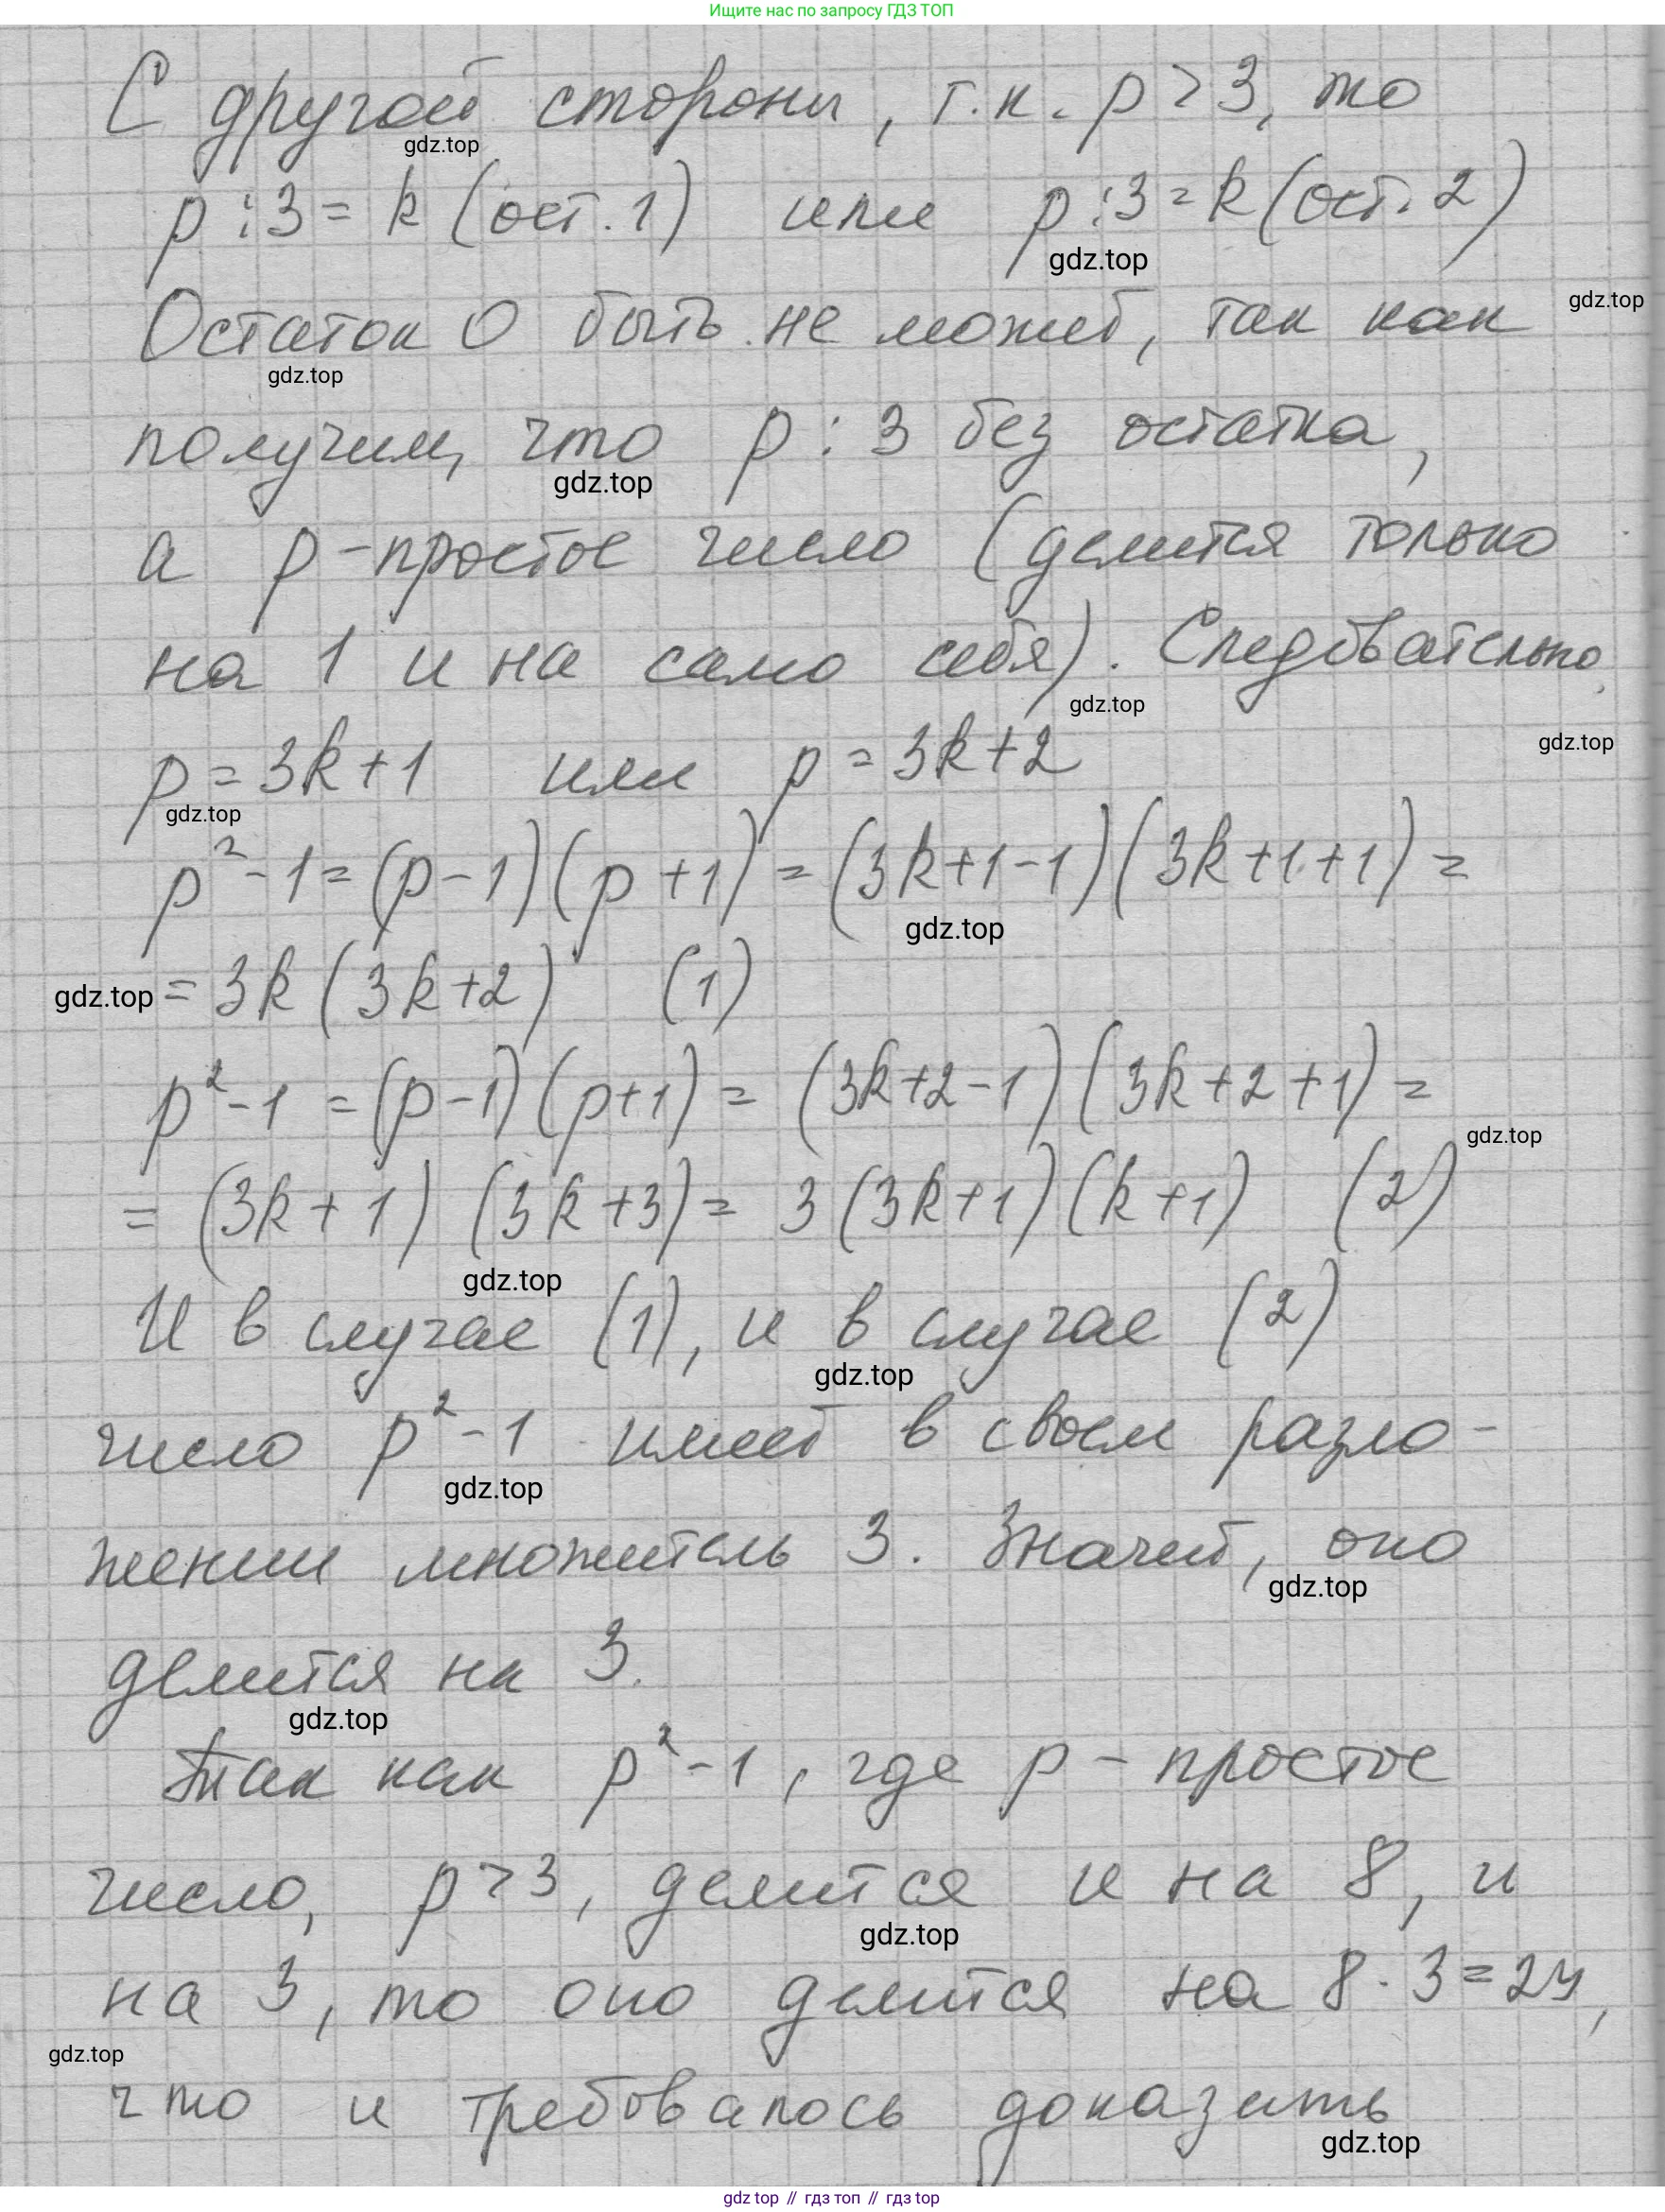 Ищите нас по запросу ГДЗ ТОП
С другой стороны, т.к. p > 3, то
gdz.top
p : 3 = k (ост. 1) или p : 3 = k (ост. 2)
gdz.top
Остаток 0 быть не может, так как
gdz.top
gdz.top
получим, что p : 3 без остатка,
gdz.top
а p - простое число (делится только
на 1 и на само себя). Следовательно,
gdz.top
p = 3k + 1 или p = 3k + 2
gdz.top
gdz.top
p² - 1 = (p - 1)(p + 1) = (3k + 1 - 1)(3k + 1 + 1) =
gdz.top
gdz.top = 3k (3k + 2) (1)
p² - 1 = (p - 1)(p + 1) = (3k + 2 - 1)(3k + 2 + 1) =
gdz.top
= (3k + 1) (3k + 3) = 3 (3k + 1)(k + 1) (2)
gdz.top
И в случае (1), и в случае (2)
gdz.top
число p² - 1 имеет в своем разло-
gdz.top
жении множитель 3. Значит, оно
gdz.top
делится на 3.
gdz.top
Так как p² - 1, где p - простое
число, p > 3, делится и на 8, и
gdz.top
на 3, то оно делится на 8 · 3 = 24,
gdz.top
что и требовалось доказать
gdz.top
gdz top // гдз топ // gdz top